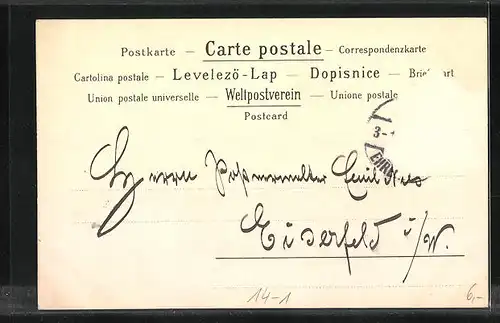 Postkarte — Carte postale — Correspondenzkarte
Cartolina postale — Levelezö-Lap — Dopisnice — Brief
Union postale universelle — Weltpostverein — Unione postale
Postcard
3-
Herrn Postverwalter Emil
Eiserfeld i/W.
14-1
6,-